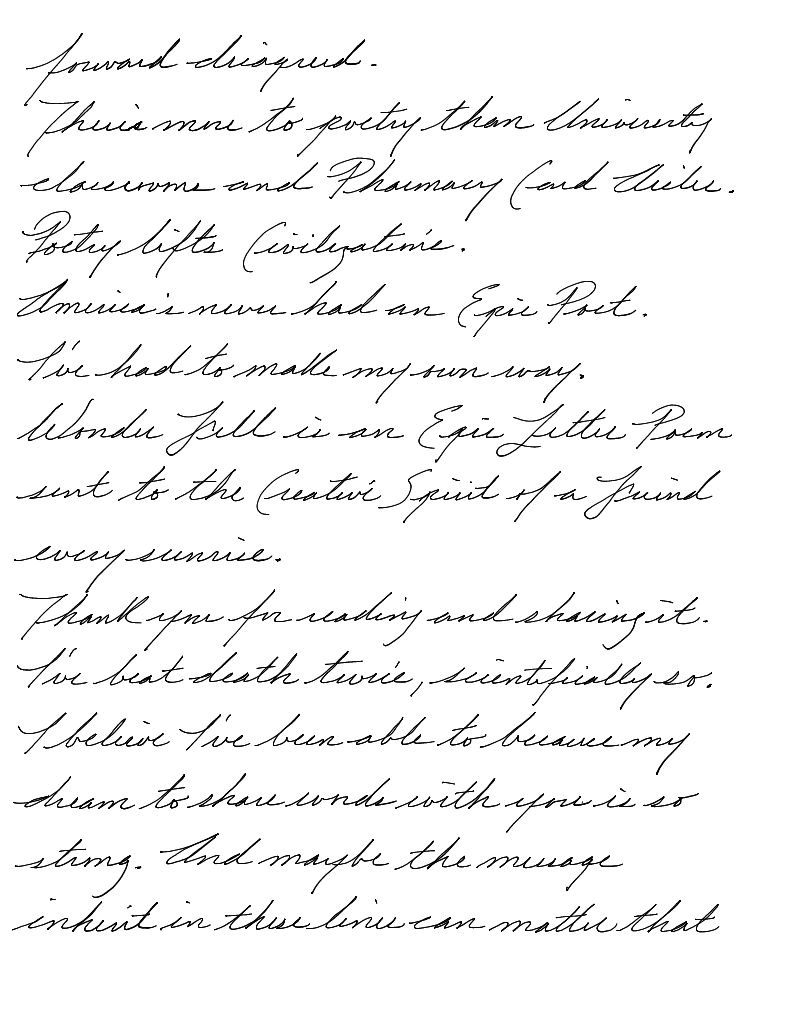 forward disagreed.
There's more to poetry than University
classrooms and Pharmacy Card Aisles.
Poetry lifts Civilizations.
America's never had an Epic Poet.
I've had to make my own way.
Wonder Fell is an Epic Letter Poem
sent to the Creative Spirit of a Friend
every sunrise.
Thank you for reading and sharing it.
I've beat death twice, scientifically so.
I believe I've been able to because my
dream to share words with you is so
strong. And maybe the message
inherit in these lines can matter that